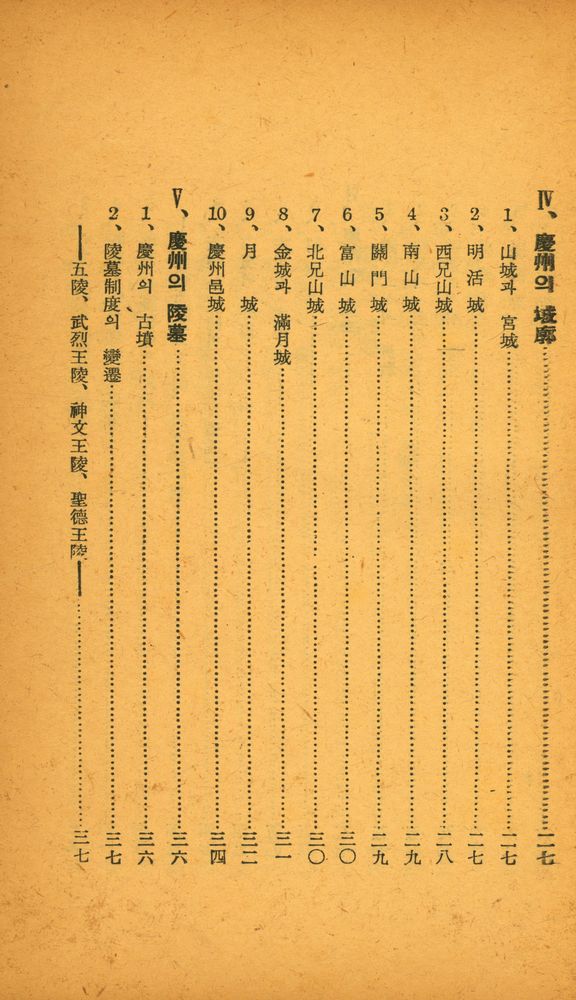 Ⅳ、慶州의 城廓……二七
1、山城과 宮城……二七
2、明活城……二七
3、西兄山城……二八
4、南山城……二九
5、關門城……二九
6、富山城……三〇
7、北兄山城……三〇
8、金城과 滿月城……三一
9、月城……三二
10、慶州邑城……三四
Ⅴ、慶州의 陵墓……三六
1、慶州의 古墳……三六
2、陵墓制度의 變遷……三七
——五陵、武烈王陵、神文王陵、聖德王陵——……三七